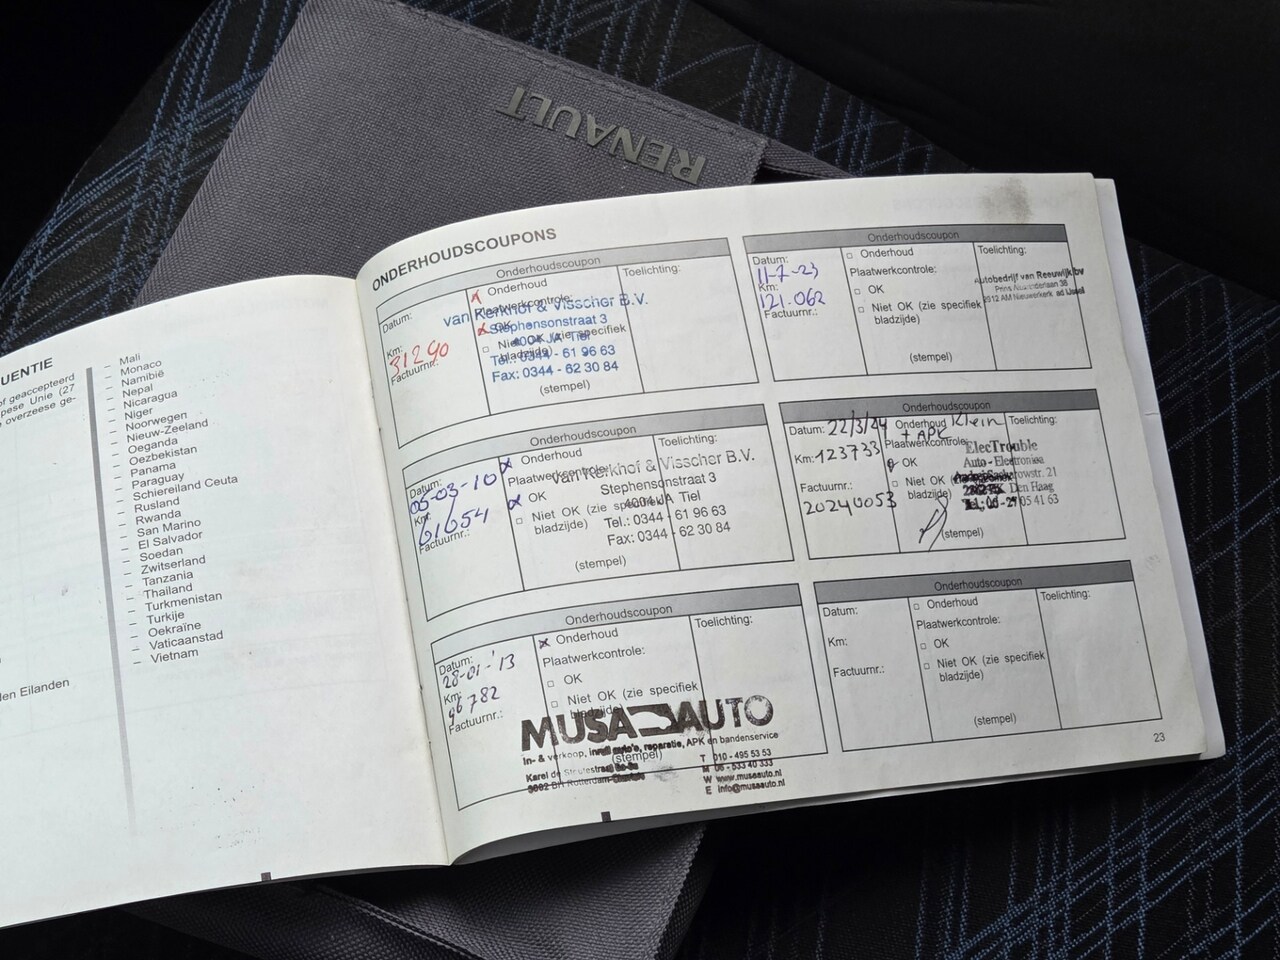 RENAULT
UENTIE
of geaccepteerd
pese Unie (27
e overzeese ge-
len Eilanden
– Mali
– Monaco
– Namibië
– Nepal
– Nicaragua
– Niger
– Noorwegen
– Nieuw-Zeeland
– Oeganda
– Oezbekistan
– Panama
– Paraguay
– Schiereiland Ceuta
– Rusland
– Rwanda
– San Marino
– El Salvador
– Soedan
– Zwitserland
– Tanzania
– Thailand
– Turkmenistan
– Turkije
– Oekraïne
– Vaticaanstad
– Vietnam
ONDERHOUDSCOUPONS
Onderhoudscoupon
Datum:
Km:
31290
Factuurnr.:
Onderhoud
Plaatwerkcontrole:
OK
Niet OK (zie specifiek
bladzijde)
(stempel)
Toelichting:
van Kerkhof & Visscher B.V.
Stephensonstraat 3
4004 JA Tiel
Tel.: 0344 - 61 96 63
Fax: 0344 - 62 30 84
Onderhoudscoupon
Datum:
05-03-10
Km:
61054
Factuurnr.:
Onderhoud
Plaatwerkcontrole:
OK
Niet OK (zie specifiek
bladzijde)
(stempel)
Toelichting:
van Kerkhof & Visscher B.V.
Stephensonstraat 3
4004 JA Tiel
Tel.: 0344 - 61 96 63
Fax: 0344 - 62 30 84
Onderhoudscoupon
Datum:
28-01-'13
Km:
96782
Factuurnr.:
Onderhoud
Plaatwerkcontrole:
OK
Niet OK (zie specifiek
bladzijde)
(stempel)
Toelichting:
MUSA AUTO
In- & verkoop, inruil auto's, reparatie, APK en bandenservice
Karel de
Rotterdam
T 010 - 495 53 53
M 06 - 533 40 333
W www.musaauto.nl
E info@musaauto.nl
Onderhoudscoupon
Datum:
11-7-23
Km:
121.062
Factuurnr.:
Onderhoud
Plaatwerkcontrole:
OK
Niet OK (zie specifiek
bladzijde)
(stempel)
Toelichting:
Autobedrijf van Reeuwijk bv
2912 AM Nieuwerkerk ad IJssel
Onderhoudscoupon
Datum: 22/3/24
Km: 123733
Factuurnr.:
20240053
Onderhoud Klein
+ APK
Plaatwerkcontrole:
OK
Niet OK
bladzijde)
(stempel)
Toelichting:
ElecTrouble
Auto - Electronica
21
Den Haag
05 41 63
Onderhoudscoupon
Datum:
Km:
Factuurnr.:
Onderhoud
Plaatwerkcontrole:
OK
Niet OK (zie specifiek
bladzijde)
(stempel)
Toelichting:
23